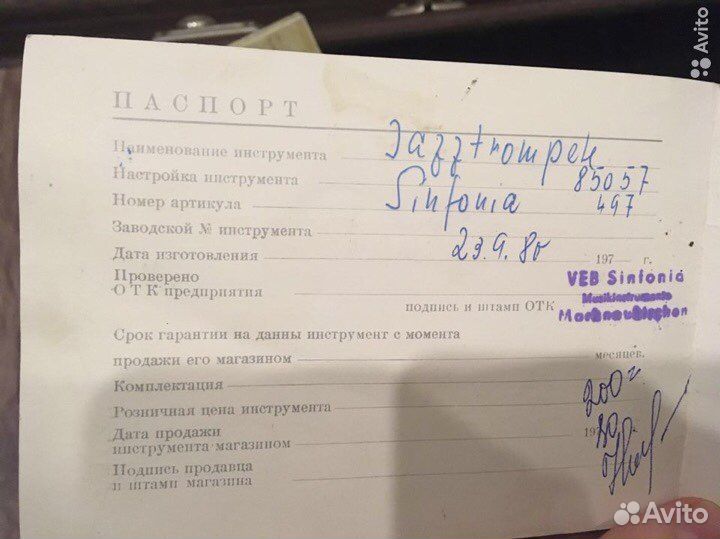 Avito
ПАСПОРТ
Наименование инструмента Jazztrompete
Настройка инструмента 85057
Номер артикула Sinfonia 497
Заводской № инструмента
Дата изготовления 23.9.80 197 г.
Проверено
ОТК предприятия
подпись и штамп ОТК
VEB Sinfonia
Musikinstrumente
Markneukirchen
Срок гарантии на данны инструмент с момента
продажи его магазином месяцев.
Комплектация
Розничная цена инструмента
200
Дата продажи
инструмента магазином 197
Подпись продавца
и штамп магазина
Avito